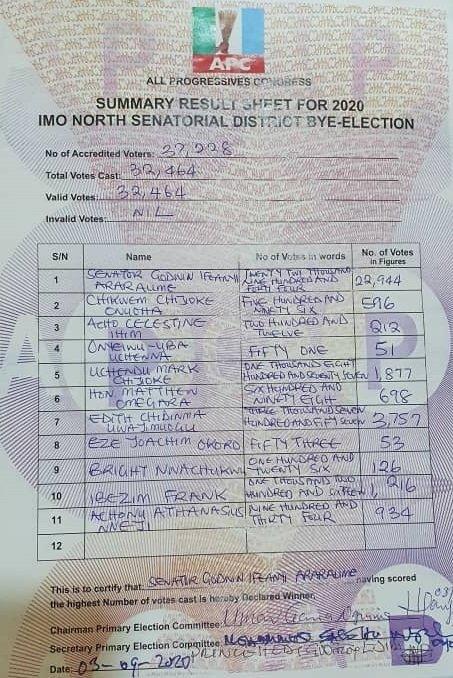 APC
ALL PROGRESSIVES CONGRESS
SUMMARY RESULT SHEET FOR 2020
IMO NORTH SENATORIAL DISTRICT BYE-ELECTION
No of Accredited Voters: 37,228
Total Votes Cast: 32,464
Valid Votes: 32,464
Invalid Votes: NIL
S/N Name No of Votes in words No. of Votes in Figures
1 SENATOR GODWIN IFEANYI ARARAUME TWENTY TWO THOUSAND NINE HUNDRED AND FORTY FOUR 22,944
2 CHIKWEM CHIJIOKE ONUOHA FIVE HUNDRED AND NINETY SIX 596
3 ACHO CELESTINE IHIM TWO HUNDRED AND TWELVE 212
4 ONYEIWU-UBA UCHENNA FIFTY ONE 51
5 UCHENDU MARK CHIJIOKE ONE THOUSAND EIGHT HUNDRED AND SEVENTY SEVEN 1,877
6 HON. MATTHEW OMEGARA SIX HUNDRED AND NINETY EIGHT 698
7 EDITH CHIDINMA UWAJUMOGU THREE THOUSAND SEVEN HUNDRED AND FIFTY SEVEN 3,757
8 EZE JOACHIM OKORO FIFTY THREE 53
9 BRIGHT NWACHUKWU ONE HUNDRED AND TWENTY SIX 126
10 IBEZIM FRANK ONE THOUSAND TWO HUNDRED AND SIXTEEN 1,216
11 ACHONU ATHANASIUS NNEJI NINE HUNDRED AND THIRTY FOUR 934
12
This is to certify that SENATOR GODWIN IFEANYI ARARAUME having scored
the highest Number of votes cast is hereby Declared Winner.
Chairman Primary Election Committee:
Secretary Primary Election Committee:
Date: 03-09-2020